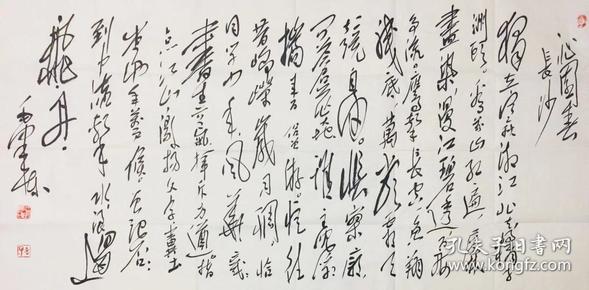 沁园春
长沙
独立寒秋湘江北去橘子
洲头看万山红遍层林
尽染漫江碧透百舸
争流鹰击长空鱼翔
浅底万类霜天
竞自由怅寥廓
问苍茫大地谁主沉浮
携来百侣曾游忆往
昔峥嵘岁月稠恰
同学少年风华茂
书生意气挥斥方遒指
点江山激扬文字粪土
当年万户侯曾记否
到中流击水浪遏
飞舟
孔夫子旧书网